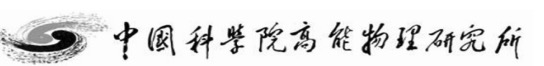 中国科学院高能物理研究所